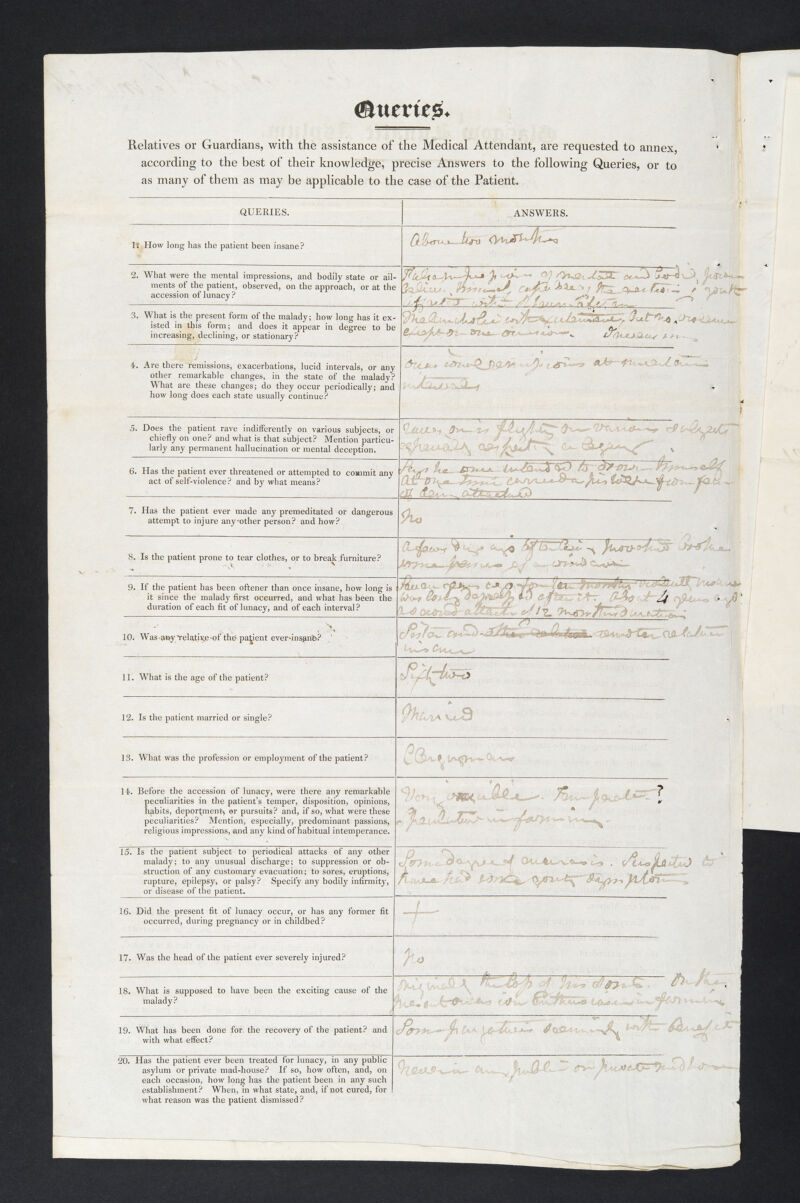 Queries.
Relatives or Guardians, with the assistance of the Medical Attendant, are requested to annex,
according to the best of their knowledge, precise Answers to the following Queries, or to
as many of them as may be applicable to the case of the Patient.
QUERIES.
ANSWERS.
1. How long has the patient been insane?
About two months
2. What were the mental impressions, and bodily state or ail-
ments of the patient, observed, on the approach, or at the
accession of lunacy?
3. What is the present form of the malady; how long has it ex-
isted in this form; and does it appear in degree to be
increasing, declining, or stationary?
Melancholic with but no violence
except on one occasion.
4. Are there remissions, exacerbations, lucid intervals, or any
other remarkable changes, in the state of the malady?
What are these changes; do they occur periodically; and
how long does each state usually continue?
occasional at uncertain
intervals
5. Does the patient rave indifferently on various subjects, or
chiefly on one? and what is that subject? Mention particu-
larly any permanent hallucination or mental deception.
raves on on various subjects
especially respecting
6. Has the patient ever threatened or attempted to commit any
act of self-violence? and by what means?
Says he once intended to drown himself
At one time carried a
7. Has the patient ever made any premeditated or dangerous
attempt to injure any other person? and how?
No
8. Is the patient prone to tear clothes, or to break furniture?
A few days ago after being provoked broke
some panes of a window
9. If the patient has been oftener than once insane, how long is
it since the malady first occurred, and what has been the
duration of each fit of lunacy, and of each interval?
About 4 years ago
a second attack of 12 months duration
10. Was any relative of the patient ever insane?
Sister and other relation remoter relation
insane
11. What is the age of the patient?
Sixty two
12. Is the patient married or single?
Married
13. What was the profession or employment of the patient?
Clergyman
14. Before the accession of lunacy, were there any remarkable
peculiarities in the patient's temper, disposition, opinions,
habits, deportment, or pursuits? and, if so, what were these
peculiarities? Mention, especially, predominant passions,
religious impressions, and any kind of habitual intemperance.
Very Temperate. ?
in farming
15. Is the patient subject to periodical attacks of any other
malady; to any unusual discharge; to suppression or ob-
struction of any customary evacuation; to sores, eruptions,
rupture, epilepsy, or palsy? Specify any bodily infirmity,
or disease of the patient.
Some degree of Suspected to
have had some gouty symptoms
16. Did the present fit of lunacy occur, or has any former fit
occurred, during pregnancy or in childbed?
17. Was the head of the patient ever severely injured?
No
18. What is supposed to have been the exciting cause of the
malady?
originally the loss of his sons. On the
present occasion Enthusiasm in farming
19. What has been done for the recovery of the patient? and
with what effect?
Some purgatives seemingly with benefit
20. Has the patient ever been treated for lunacy, in any public
asylum or private mad-house? If so, how often, and, on
each occasion, how long has the patient been in any such
establishment? When, in what state, and, if not cured, for
what reason was the patient dismissed?
Never in any public or private madhouse